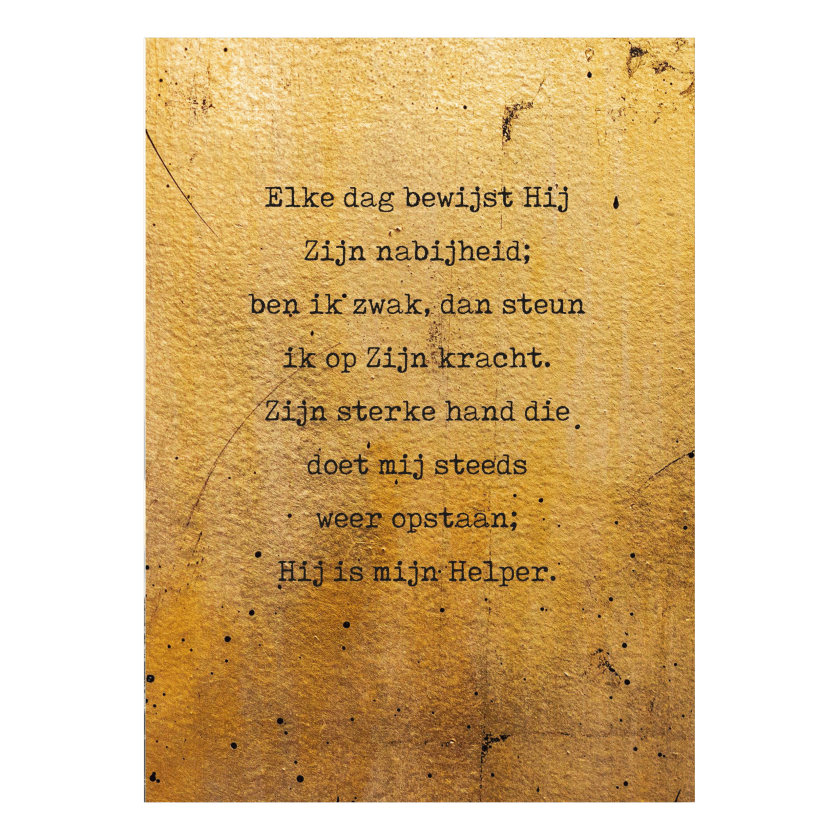 Elke dag bewijst Hij
Zijn nabijheid;
ben ik zwak, dan steun
ik op Zijn kracht.
Zijn sterke hand die
doet mij steeds
weer opstaan;
Hij is mijn Helper.